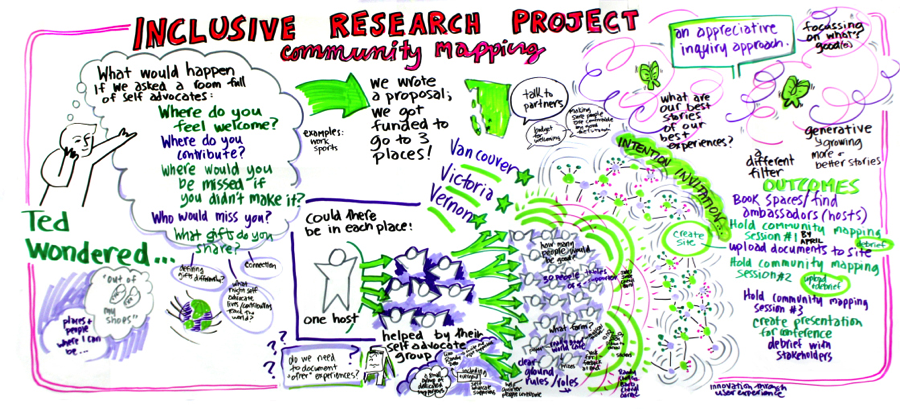 INCLUSIVE RESEARCH PROJECT
community mapping
What would happen
if we asked a room full
of self advocates:
Where do you
feel welcome?
Where do you
contribute?
Where would
you be missed if
you didn't make it?
Who would miss you?
What gifts do you
share?
Ted
Wondered...
"out of
my
shoes"
places +
people
where I can
be...
defining
gifts differently?
connection
what
might self
advocate
lives/contributing
the
world?
examples:
work
sports
we wrote
a proposal;
we got
funded to
go to 3
places!
talk to
partners
budget
for
welcoming
making
sure people
are comfortable
Vancouver
Victoria
Vernon
Could there
be in each place:
one host
helped by their
self advocate
group
do we need
to document
+ offer experiences?
how many
people would
be good?
30 people
what form?
world cafe
clear
ground
rules/roles
INTENTION INVITATION
what are
our best
stories
of our
best
experiences?
an appreciative
inquiry approach.
focussing
on what's
good(ol)
a
different
filter
generative
growing
more +
better stories
OUTCOMES
Book spaces/find
ambassadors (hosts)
create
site
Hold community mapping
session #1 BY APRIL
upload documents to site
debrief
Hold community mapping
session #2
upload
+debrief
Hold community mapping
session #3
create presentation
for conference
debrief with
stakeholders
innovation through
user experience